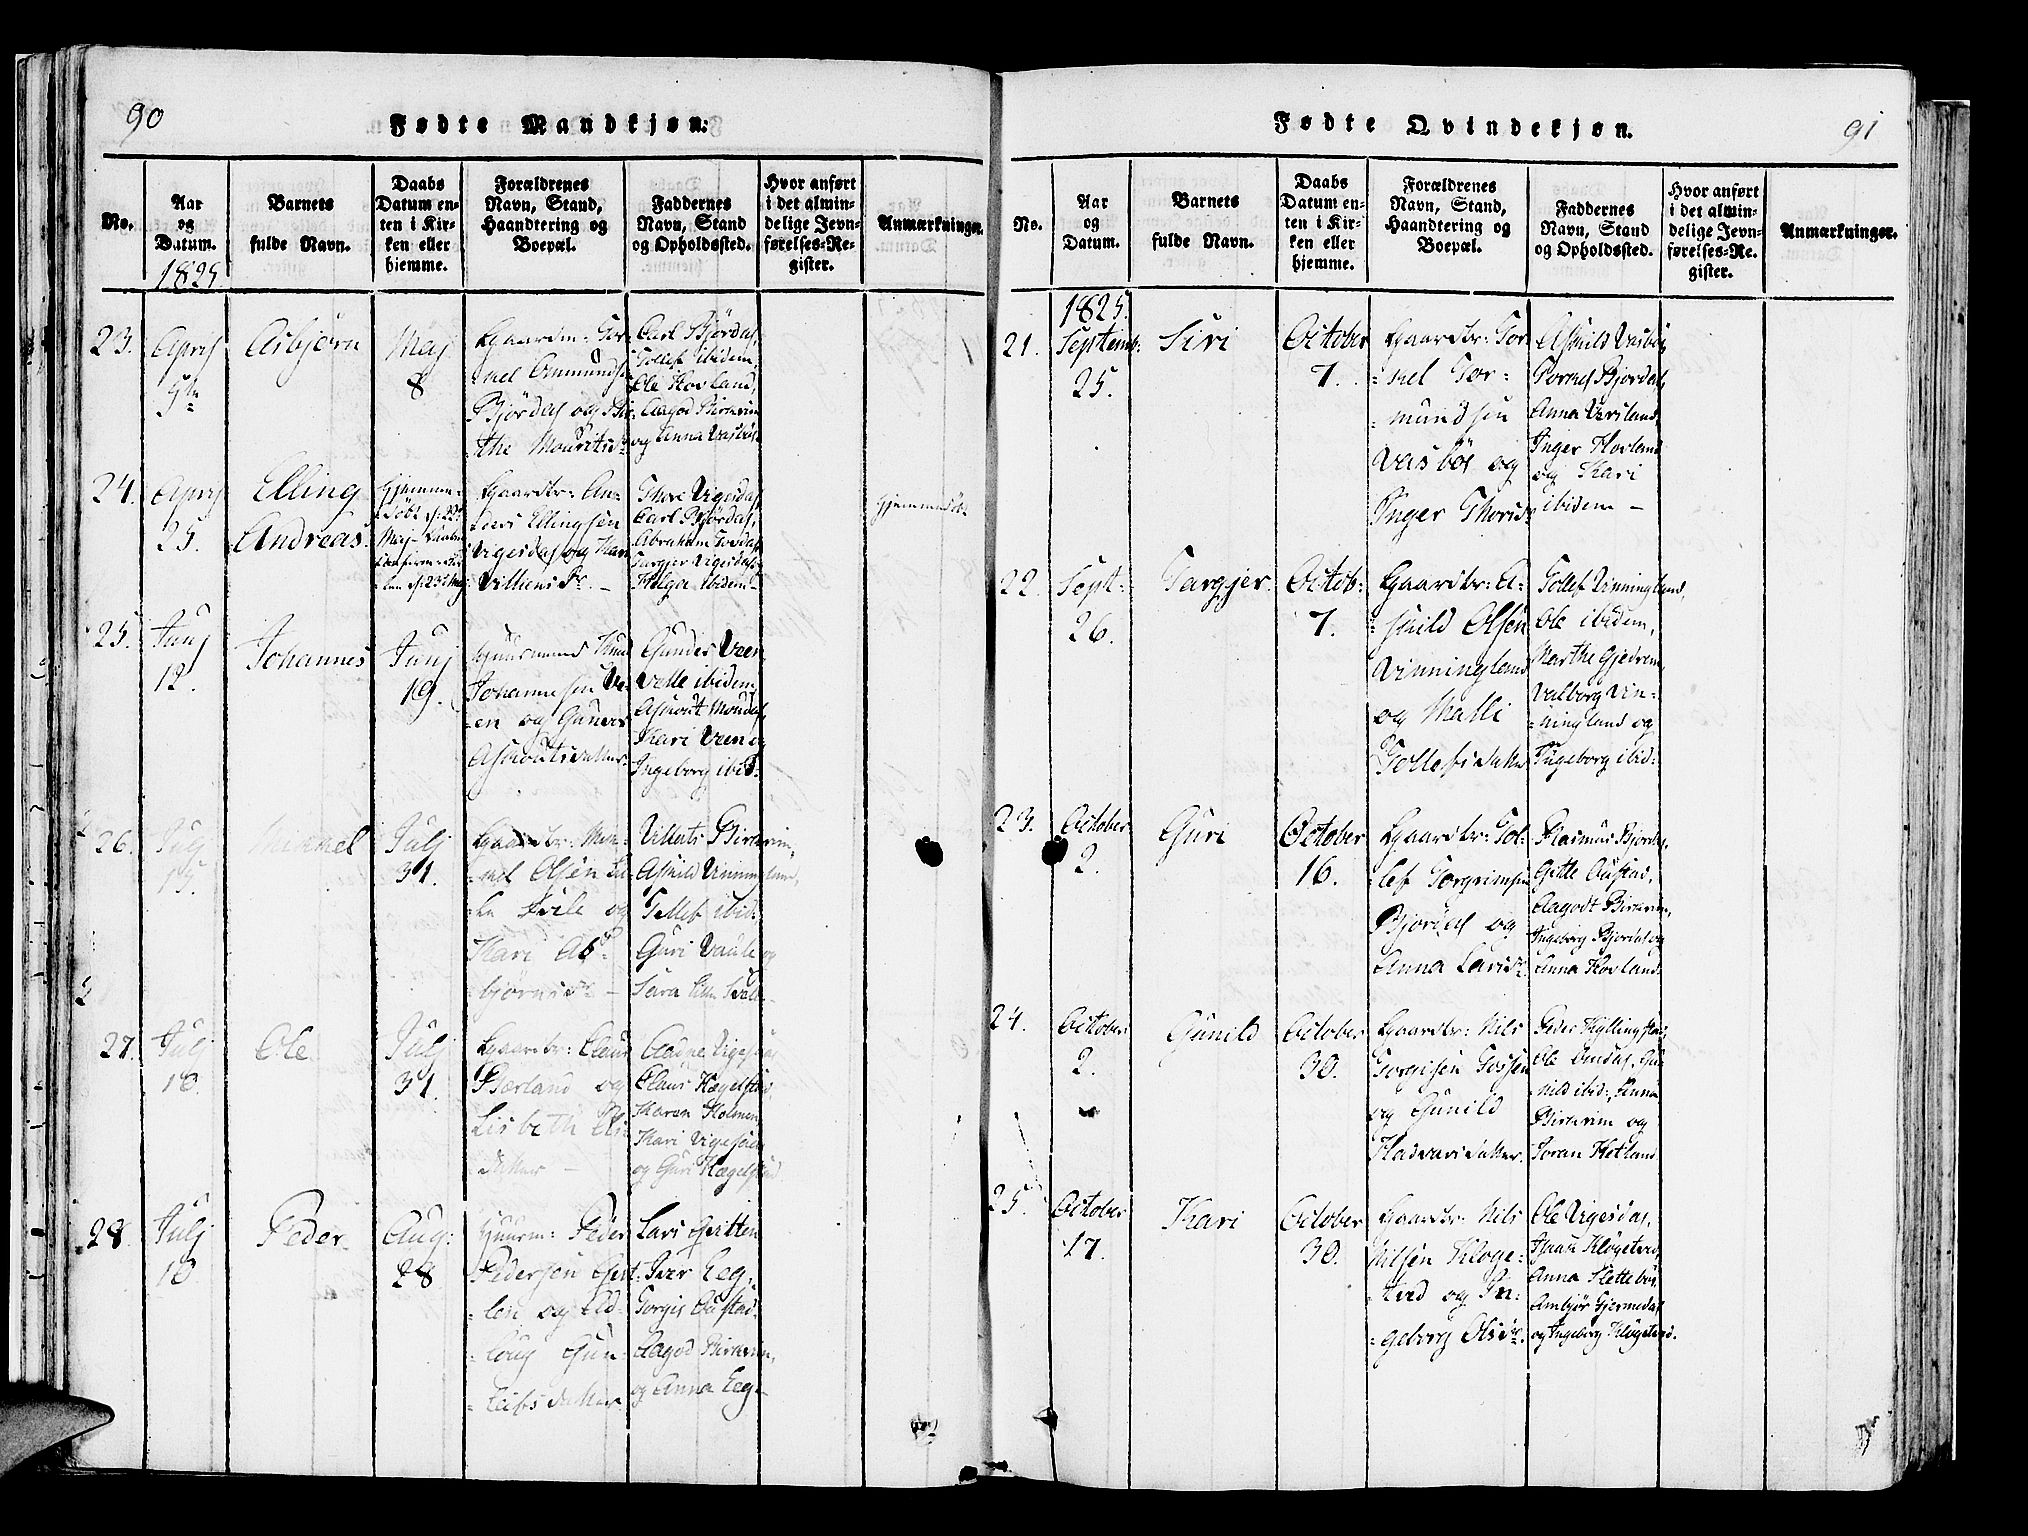 90
Fødte Mandkjøn:
No.
Aar
og
Datum.
1825
Barnets
fulde Navn.
Daabs
Datum en-
ten i Kir-
ken eller
hjemme.
Forældrenes
Navn, Stand,
Haandtering og
Boepæl.
Faddernes
Navn, Stand
og Opholdssted.
Hvor anført
i det almin-
delige Jevn-
førelses-Re-
gister.
Anmærkninger.
23.
April
9de
Asbjørn
Maj
8
Gaardm: Tor-
kel Ommunds
Bjørdal og Bir-
the Mouritsd.
Carl Bjørdal,
Tollef ibidem,
Ole Hovland,
Aagod Birkrim
og Anna Vasbøe
24.
April
25.
Elling
Andreas.
Gaardbr: An-
ders Ellingsen
Vigesdal og Kari
Villumsdr. -
Thore Vigesdal,
Carl Bjørdal,
Abraham
Targjer Vigesdal,
Helga ibidem -
Hjemmedøbt
25.
Junj
12.
Johannes
Junj
19.
Huusmand Knud
Johannesen Ve-
en og Guner
Asmontsdatter.
Gunder Veen
Velle ibidem
Asmont Mondal,
Kari Veen og
Ingeborg ibid:
26.
Julj
15.
Mikkel
Julj
31.
Gaardbr: Mik-
kel Olsen Li-
le Svile og
Kari As-
bjørnsdr. -
Villats Birkrim,
Askild Vinningland,
Tollef ibid:
Guri Vaule og
Sara Litle Svile
27.
Julj
10.
Ole
Julj
31.
Gaardbr: Claus
Bærland og
Lisbeth Els-
datter -
Aadne Vigesdal
Claus Hægelstad,
Karen Holmen,
Kari Vigesdal
og Guri Hægelstad
28.
Julj
10.
Peder
Aug:
28
Huusm: Peder
Pedersen Gjit-
len og Eld-
loug Gun-
leifsdatter.
Lars Gjitlen
Iver Eeg,
Torgis Oustad
Aagod Birkrim,
og Anna Eeg -
Fødte Qvindekjøn.
91
No.
Aar
og
Datum.
Barnets
fulde Navn.
Daabs
Datum en-
ten i Kir-
ken eller
hjemme.
Forældrenes
Navn, Stand,
Haandtering og
Boepæl.
Faddernes
Navn, Stand
og Opholdssted.
Hvor anført
i det almin-
delige Jevn-
førelses-Re-
gister.
Anmærkninger.
1825.
21.
Septemb:
25.
Siri
October
7.
Gaardbr: Tor-
kel Tor-
mundsen
Vasbøe og
Inger Thorsd.
Askild Vasbøe,
Torkel Bjordal,
Anna Versland,
Inger Hovland
og Kari
ibidem -
22.
Sept:
26.
Targjer.
Octob:
7.
Gaardbr: A-
skild Olsen
Vinningland
og Malli
Tollefsdatter
Tollef Vinningland,
Ole ibidem,
Marthe Gjedrem,
Valborg Vin-
ningland og
Ingeborg ibid:
23.
October
2.
Guri
October
16.
Gaardbr: Tol-
lef Torgrimsen
Bjordal og
Anna Larsdr.
Rasmus Bjordal,
Gitle Oustad,
Aagodt Birkrim,
Ingeborg Bjordal og
Anna Hovland.
24.
October
2.
Gunild
October
30.
Gaardbr: Nils
Torgisen Tossen
og Gunild
Hadvarsdatter.
Peder Kyllingstad,
Ole Omdal, Gu-
nild ibid:, Anna
Birkrim og
Joran Hetland
25.
October
17.
Kari
October
30.
Gaardbr: Nils
Nilsen Kloge-
tved og In-
geborg Olsdr.
Ole Vigesdal,
Isaac Klogetved,
Anna Slettebøe,
Ambjør Gjermedal
og Ingeborg Klogetved.